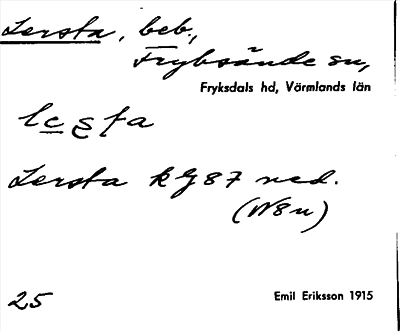 Lersta, beb.,
Fryksände sn,
Fryksdals hd, Värmlands län
Lersta kG87 ned.
(N8u)
25
Emil Eriksson 1915